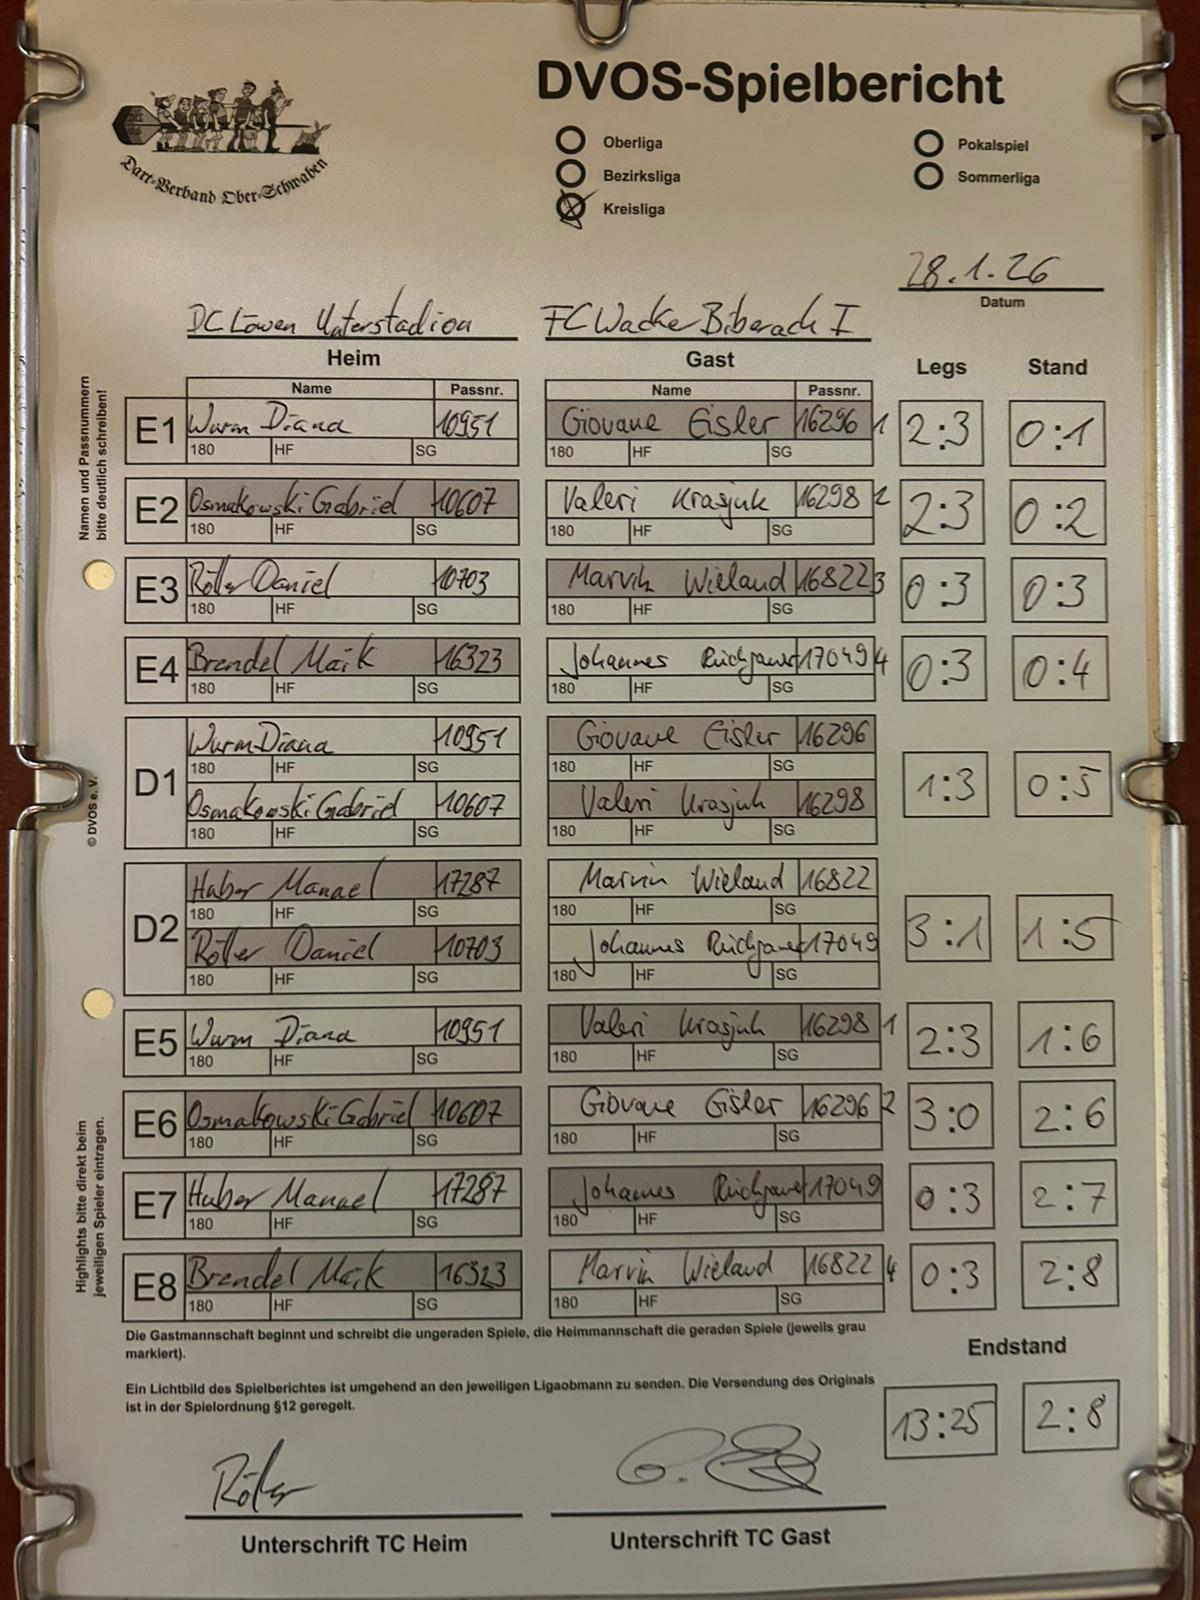 DVOS-Spielbericht
Oberliga
Bezirksliga
Kreisliga
Pokalspiel
Sommerliga
Dart-Verband Ober-Schwaben
28.1.26
Datum
DC Löwen Unterstadion FC Wacker Biberach I
Heim Gast Legs Stand
Namen und Passnummern
bitte deutlich schreiben!
Name Passnr. Name Passnr.
E1 Wurm Diana 10951 Giovane Eisler 16296 1 2:3 0:1
180 HF SG 180 HF SG
E2 Osmakowski Gabriel 10607 Valeri Krasjuk 16298 2 2:3 0:2
180 HF SG 180 HF SG
E3 Röller Daniel 10703 Marvin Wieland 16822 3 0:3 0:3
180 HF SG 180 HF SG
E4 Brendel Maik 16323 Johannes 17049 4 0:3 0:4
180 HF SG 180 HF SG
D1 Wurm Diana 10951 Giovane Eisler 16296 1:3 0:5
180 HF SG 180 HF SG
Osmakowski Gabriel 10607 Valeri Krasjuk 16298
180 HF SG 180 HF SG
© DVOS e. V.
D2 Huber Manuel 17287 Marvin Wieland 16822 3:1 1:5
180 HF SG 180 HF SG
Röller Daniel 10703 Johannes 17049
180 HF SG 180 HF SG
E5 Wurm Diana 10951 Valeri Krasjuk 16298 1 2:3 1:6
180 HF SG 180 HF SG
E6 Osmakowski Gabriel 10607 Giovane Eisler 16296 2 3:0 2:6
180 HF SG 180 HF SG
Highlights bitte direkt beim
jeweiligen Spieler eintragen.
E7 Huber Manuel 17287 Johannes 17049 0:3 2:7
180 HF SG 180 HF SG
E8 Brendel Maik 16323 Marvin Wieland 16822 4 0:3 2:8
180 HF SG 180 HF SG
Die Gastmannschaft beginnt und schreibt die ungeraden Spiele, die Heimmannschaft die geraden Spiele (jeweils grau
markiert).
Endstand
Ein Lichtbild des Spielberichtes ist umgehend an den jeweiligen Ligaobmann zu senden. Die Versendung des Originals
ist in der Spielordnung §12 geregelt.
13:25 2:8
Röller
Unterschrift TC Heim Unterschrift TC Gast